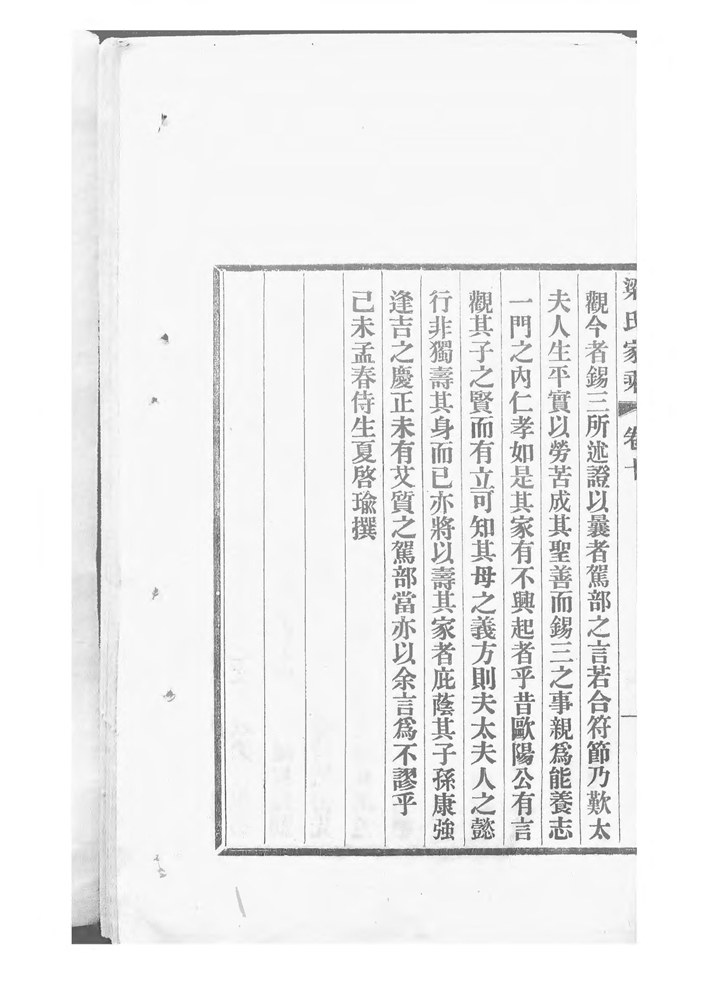 梁氏家乘 卷十
一
觀今者錫三所述證以曩者駕部之言若合符節乃歎太
夫人生平實以勞苦成其聖善而錫三之事親爲能養志
一門之內仁孝如是其家有不興起者乎昔歐陽公有言
觀其子之賢而有立可知其母之義方則夫太夫人之懿
行非獨壽其身而已亦將以壽其家者庇蔭其子孫康強
逢吉之慶正未有艾質之駕部當亦以余言爲不謬乎
己未孟春侍生夏啓瑜撰